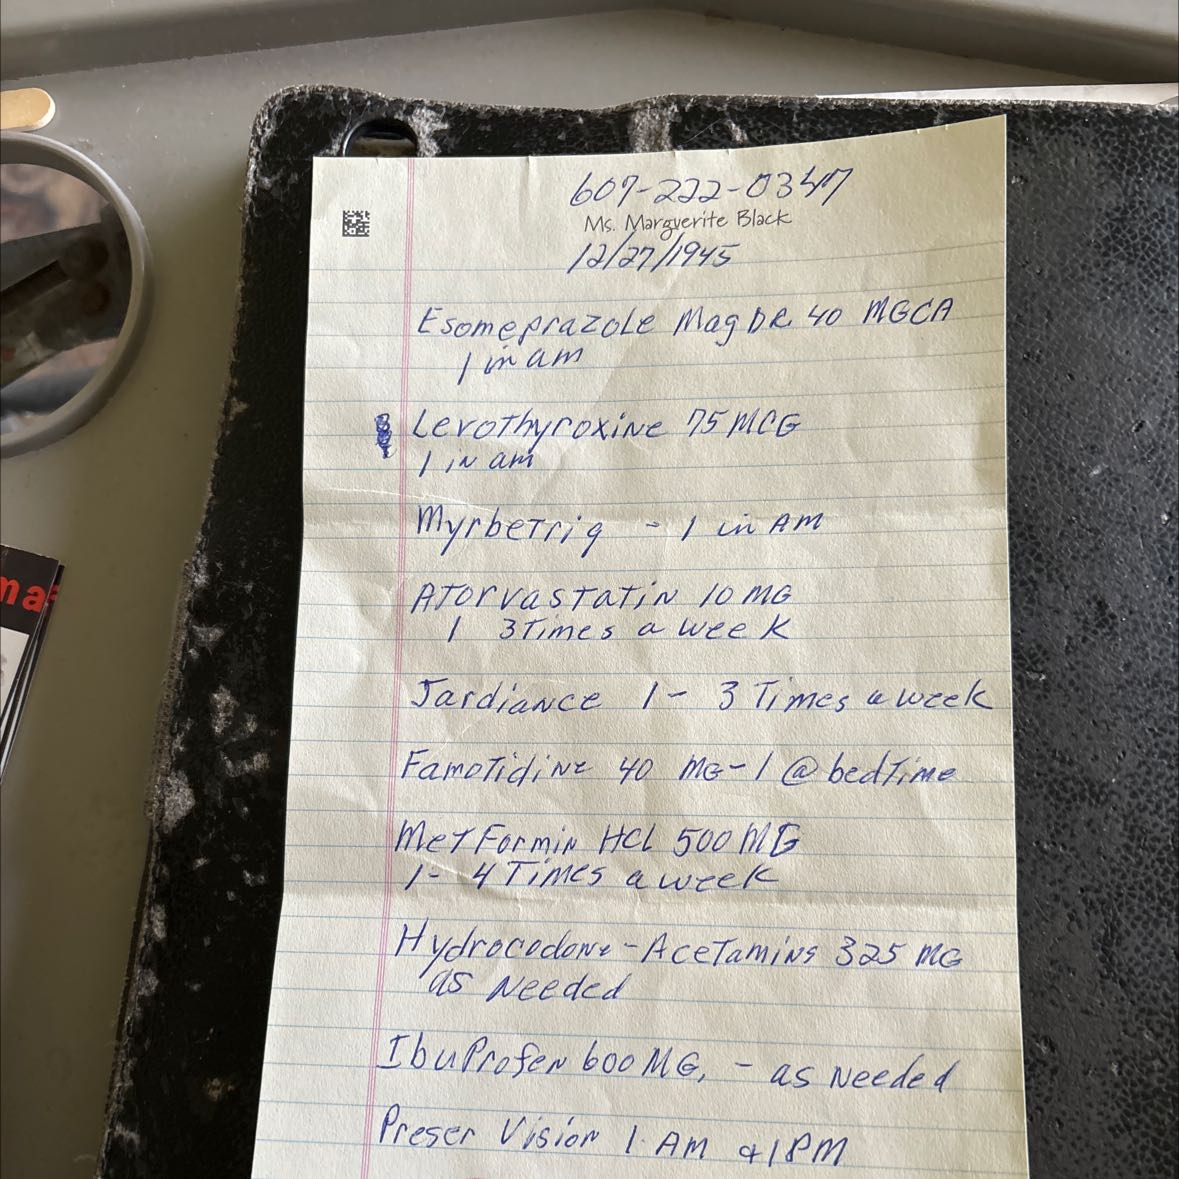 607-222-0347
Ms. Marguerite Black
12/27/1945
Esomeprazole Mag DR 40 MGCA
1 in am
Levothyroxine 75 MCG
1 in am
Myrbetriq - 1 in AM
Atorvastatin 10 MG
1 3 Times a week
Jardiance 1 - 3 Times a week
Famotidine 40 MG - 1 @ bedTime
MetFormin HCL 500 MG
1 - 4 Times a week
Hydrocodone - Acetamins 325 MG
as Needed
IbuProfen 600 MG, - as Needed
Preser Vision 1 AM & 1 PM
ma